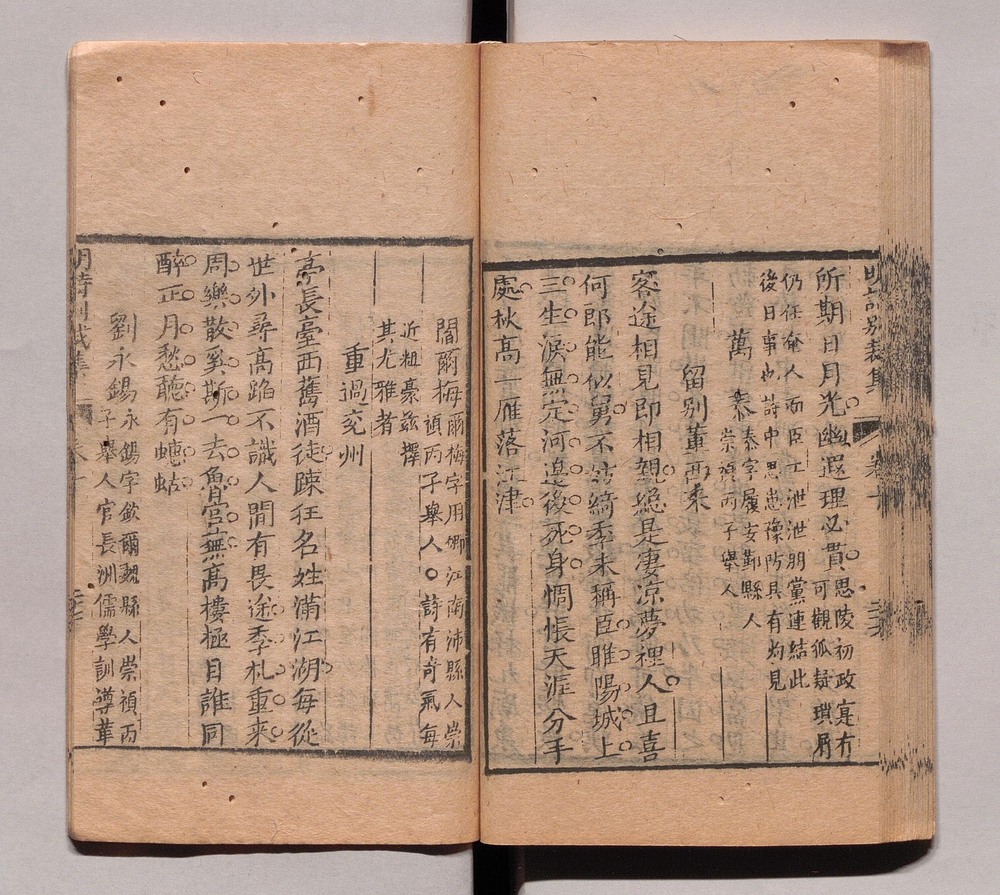 明詩別裁集 卷十
所期日月光幽遐理必貫
思陵初政寔有可觀狐疑瑣屑
仍任奄人而臣工泄泄朋黨連結此
後日事也詩中思患豫防具有灼見
萬泰
泰字履安鄞縣人
崇禎丙子舉人
留別董禹來
客途相見即相親總是凄涼夢裡人且喜
何郎能似舅不妨綺季未稱臣睢陽城上
三生淚無定河邊後死身惆悵天涯分手
處秋高一雁落江津
閻爾梅
爾梅字用卿江南沛縣人崇
禎丙子舉人○詩有奇氣每
近粗豪茲擇
其尤雅者
重過兖州
亭長臺西舊酒徒疎狂名姓滿江湖每從
世外尋高蹈不識人間有畏途季札重來
周樂散奚斯一去魯宮蕪高樓極目誰同
醉正月愁聽有蟪蛄
劉永錫
永錫字欽爾魏縣人崇禎丙
子舉人官長洲儒學訓導華
明詩別裁集 卷十